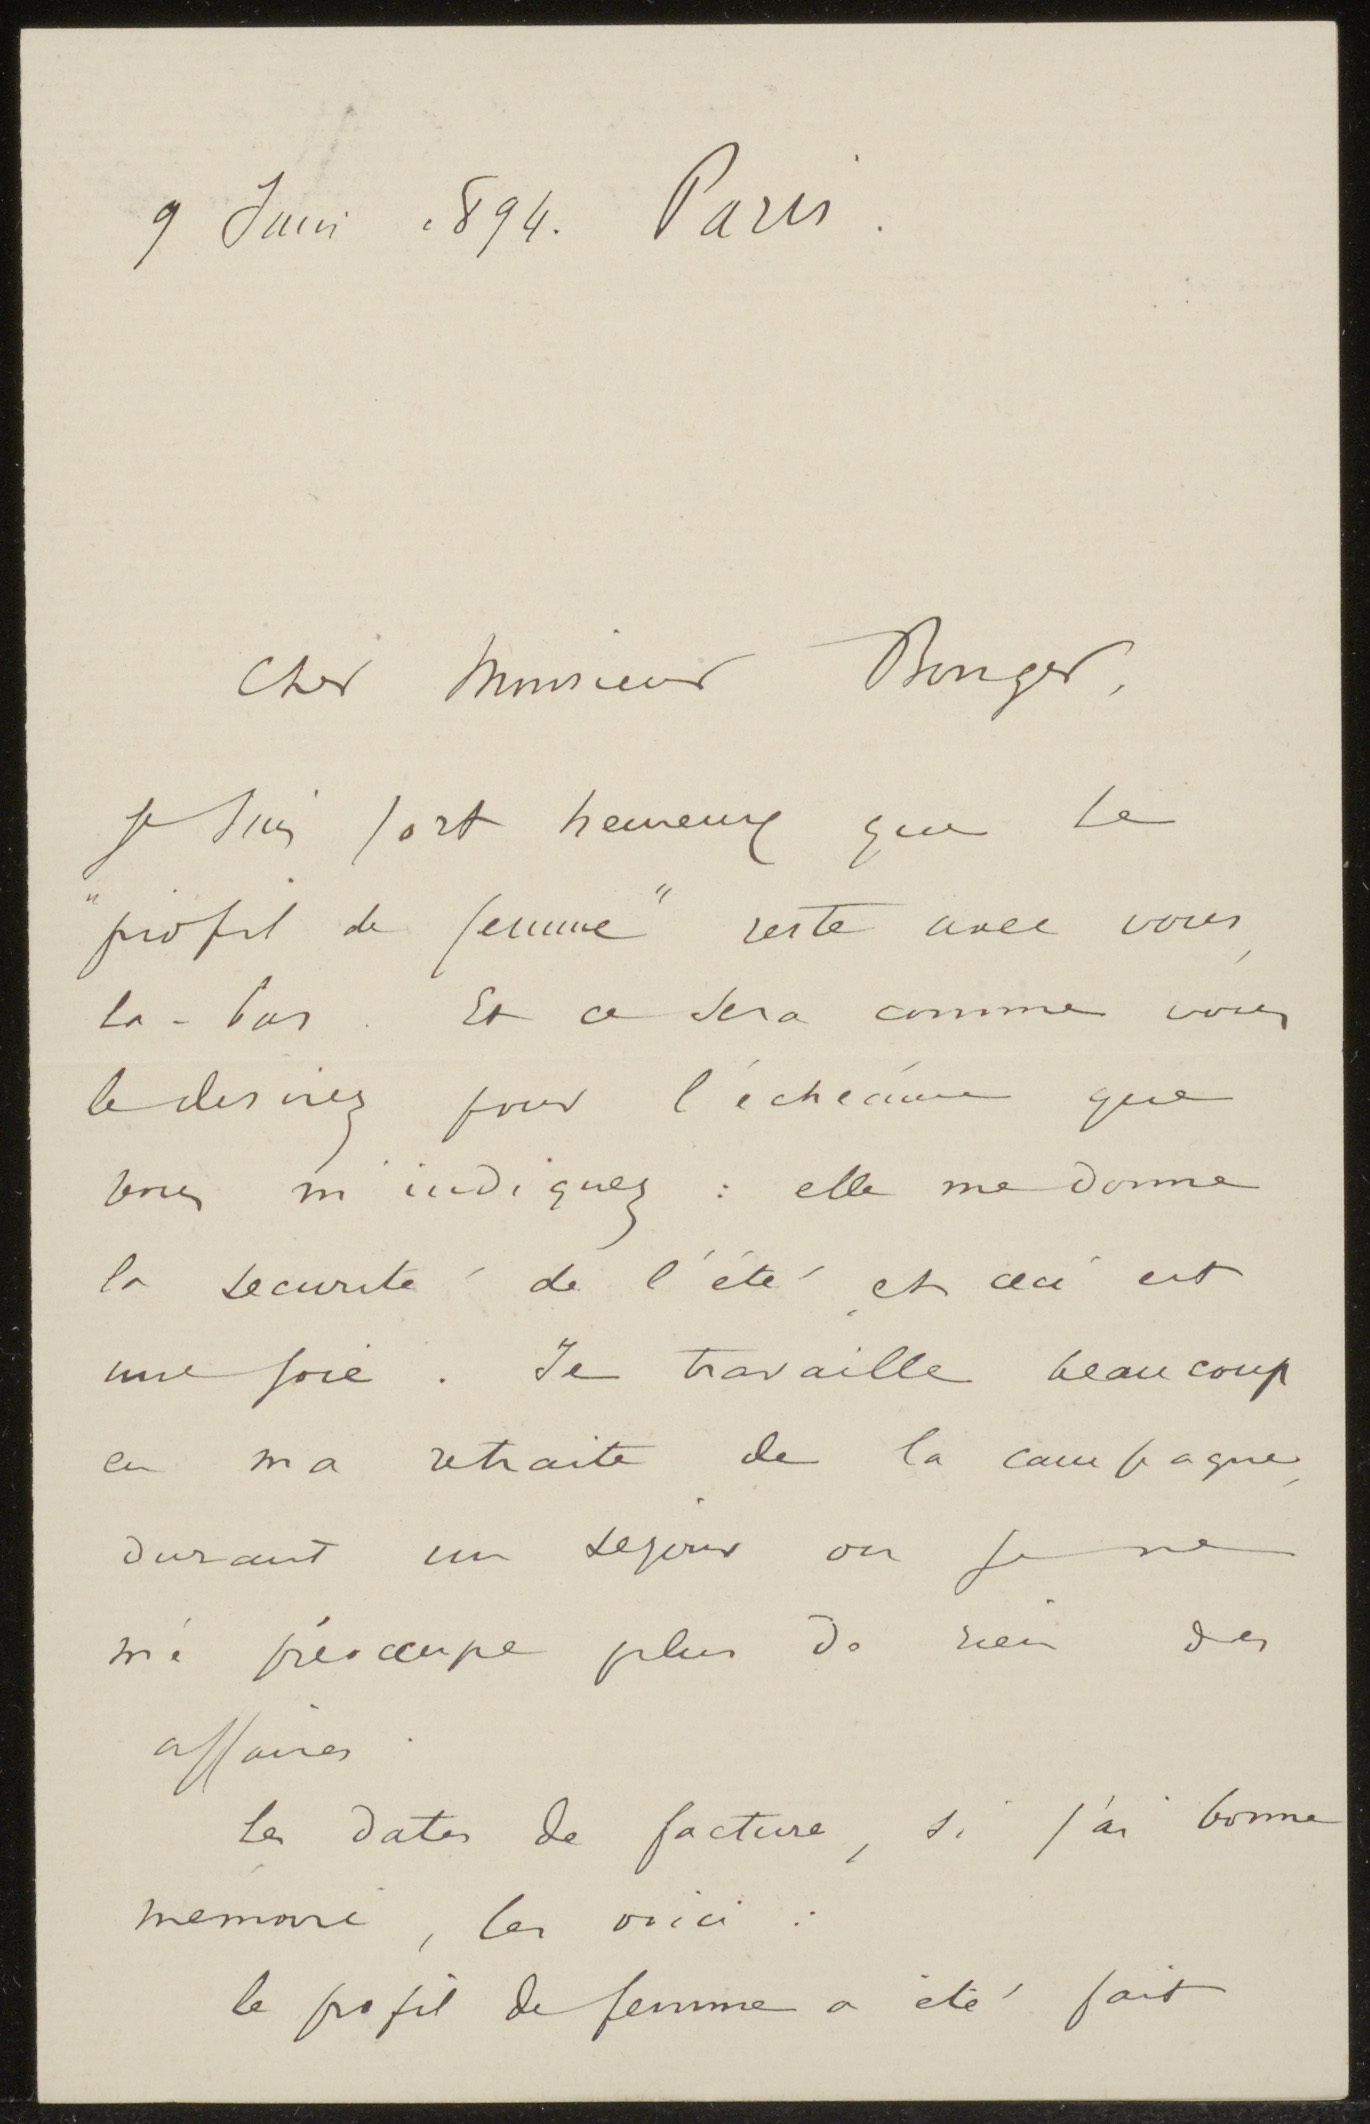 9 Juin 1894. Paris.
Cher Monsieur Bonger,
je suis fort heureux que le
"profil de femme" reste avec vous,
la-bas. Et ce sera comme vous
le desirez pour l'échéance que
vous m'indiquez : elle me donne
la securité de l'été, et ceci est
une joie. Je travaille beaucoup
en ma retraite de la campagne,
durant un sejour ou je ne
me préoccupe plus de rien des
affaires.
Les dates de facture, si j'ai bonne
mémoire, les voici :
le profil de femme a été fait